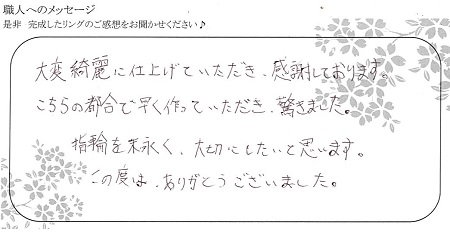 職人へのメッセージ
是非 完成したリングのご感想をお聞かせください♪
大変綺麗に仕上げていただき、感謝しております。
こちらの都合で早く作っていただき、驚きました。
指輪を末永く、大切にしたいと思います。
この度は、ありがとうございました。